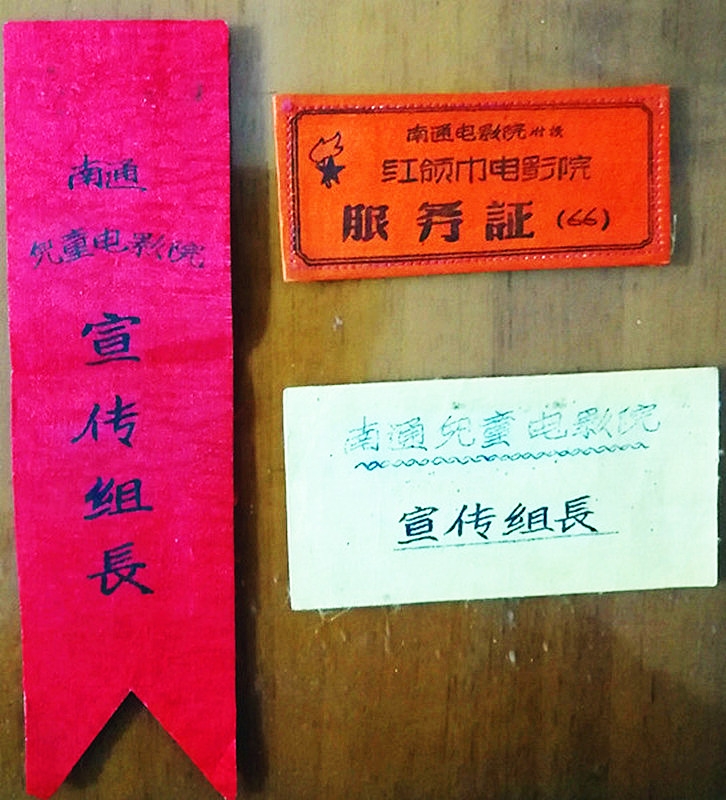 南通
兒童电影院
宣
传
组
長
南通电影院附设
红领巾电影院
服务証(66)
南通兒童电影院
宣传组長